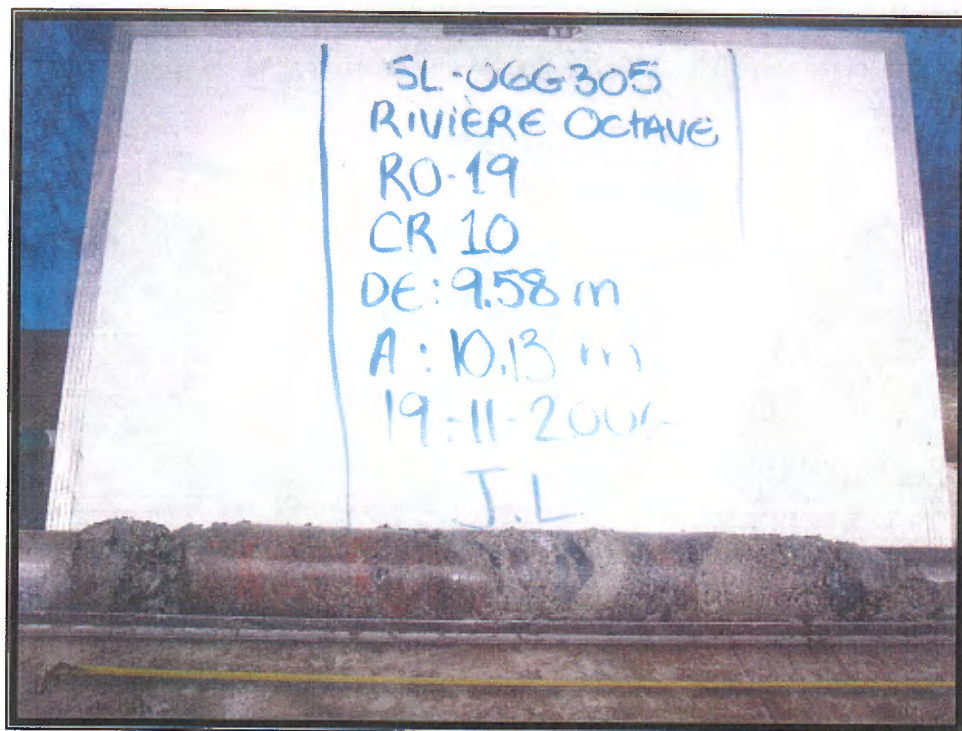 SL-06G305
RIVIÈRE OCTAVE
RO-19
CR 10
DE: 9.58 m
A: 10.13 m
19-11-2006
J.L